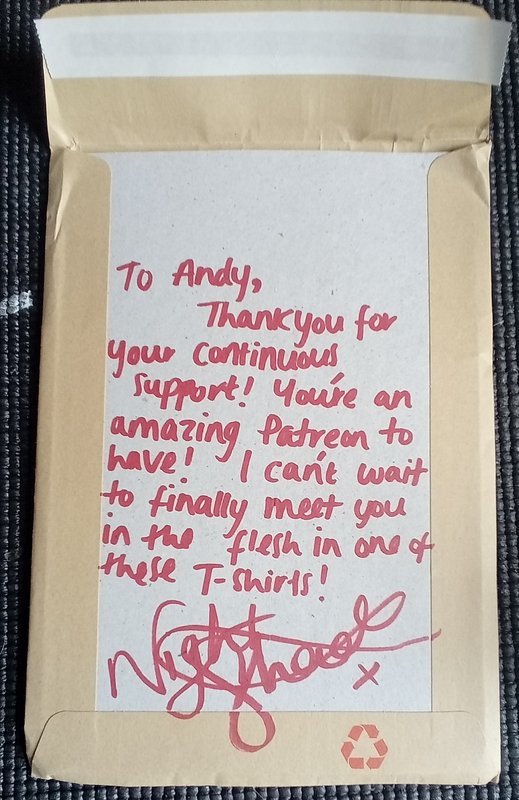 To Andy,
Thankyou for
your continuous
support! You're an
amazing Patreon to
have! I can't wait
to finally meet you
in the flesh in one of
these T-shirts!
x